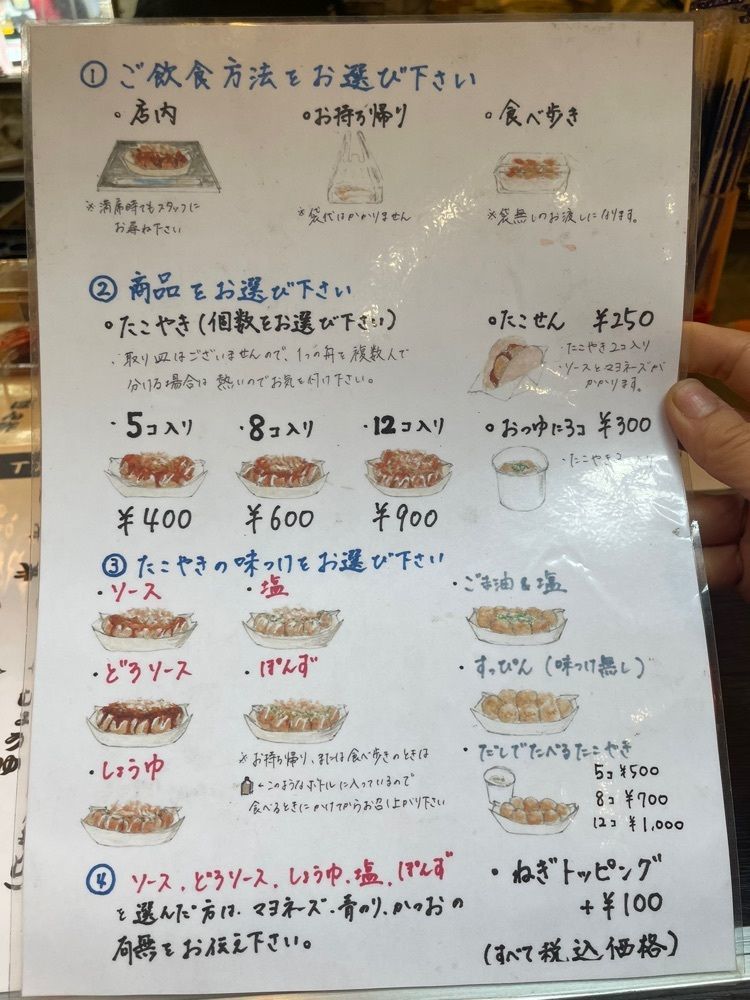 ① ご飲食方法をお選び下さい
。店内
。お持ち帰り
。食べ歩き
※満席時でもスタッフに
お尋ね下さい
※袋代はかかりません
※袋無しのお渡しになります。
② 商品をお選び下さい
。たこやき(個数をお選び下さい)
・取り皿はございませんので、1つの舟を複数人で
分ける場合は熱いのでお気を付け下さい。
・5コ入り
¥400
・8コ入り
¥600
・12コ入り
¥900
。たこせん ¥250
・たこやき2コ入り
・ソースとマヨネーズが
かかります。
。おつゆに3コ ¥300
・たこやき
③ たこやきの味つけをお選び下さい
・ソース
・塩
・ごま油&塩
・どろソース
・ぽんず
・すっぴん(味つけ無し)
・しょうゆ
※お持ち帰り、または食べ歩きのときは
←このようなボトルに入っているので
食べるときにかけてからお召し上がり下さい
・だしでたべるたこやき
5コ ¥500
8コ ¥700
12コ ¥1,000
④ ソース、どろソース、しょうゆ、塩、ぽんず
を選んだ方は、マヨネーズ・青のり、かつおの
有無をお伝え下さい。
・ねぎトッピング
+¥100
(すべて税込価格)